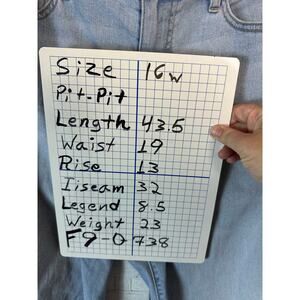 Size 16w
Pit-Pit
Length 43.5
Waist 19
Rise 13
Iiseam 32
Legend 8.5
Weight 23
F9-0738